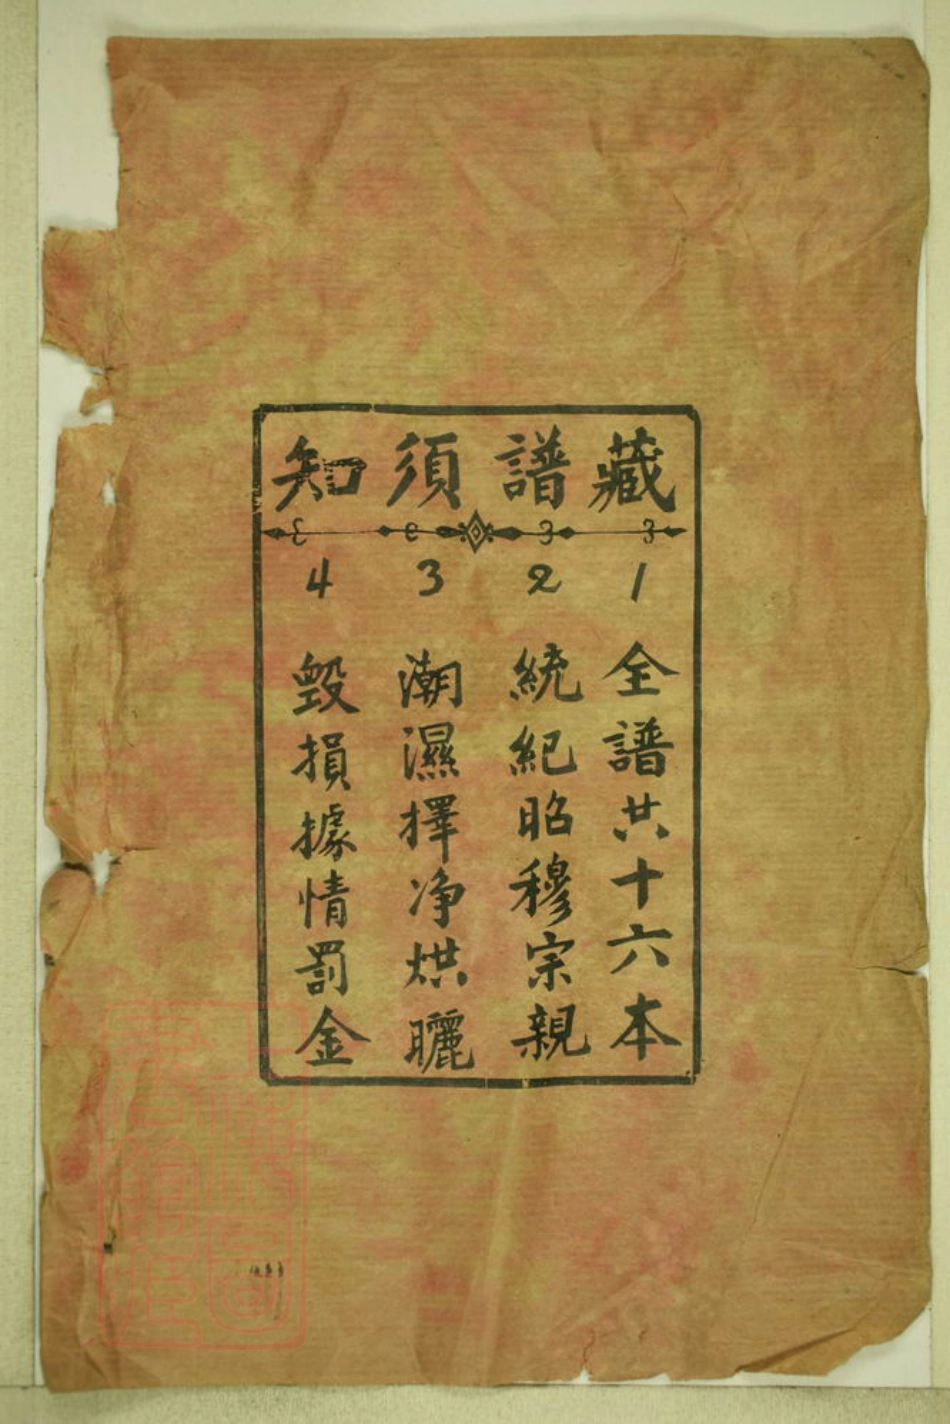 藏譜須知
1 全譜共十六本
2 統紀昭穆宗親
3 潮濕擇净烘曬
4 毀損據情罰金